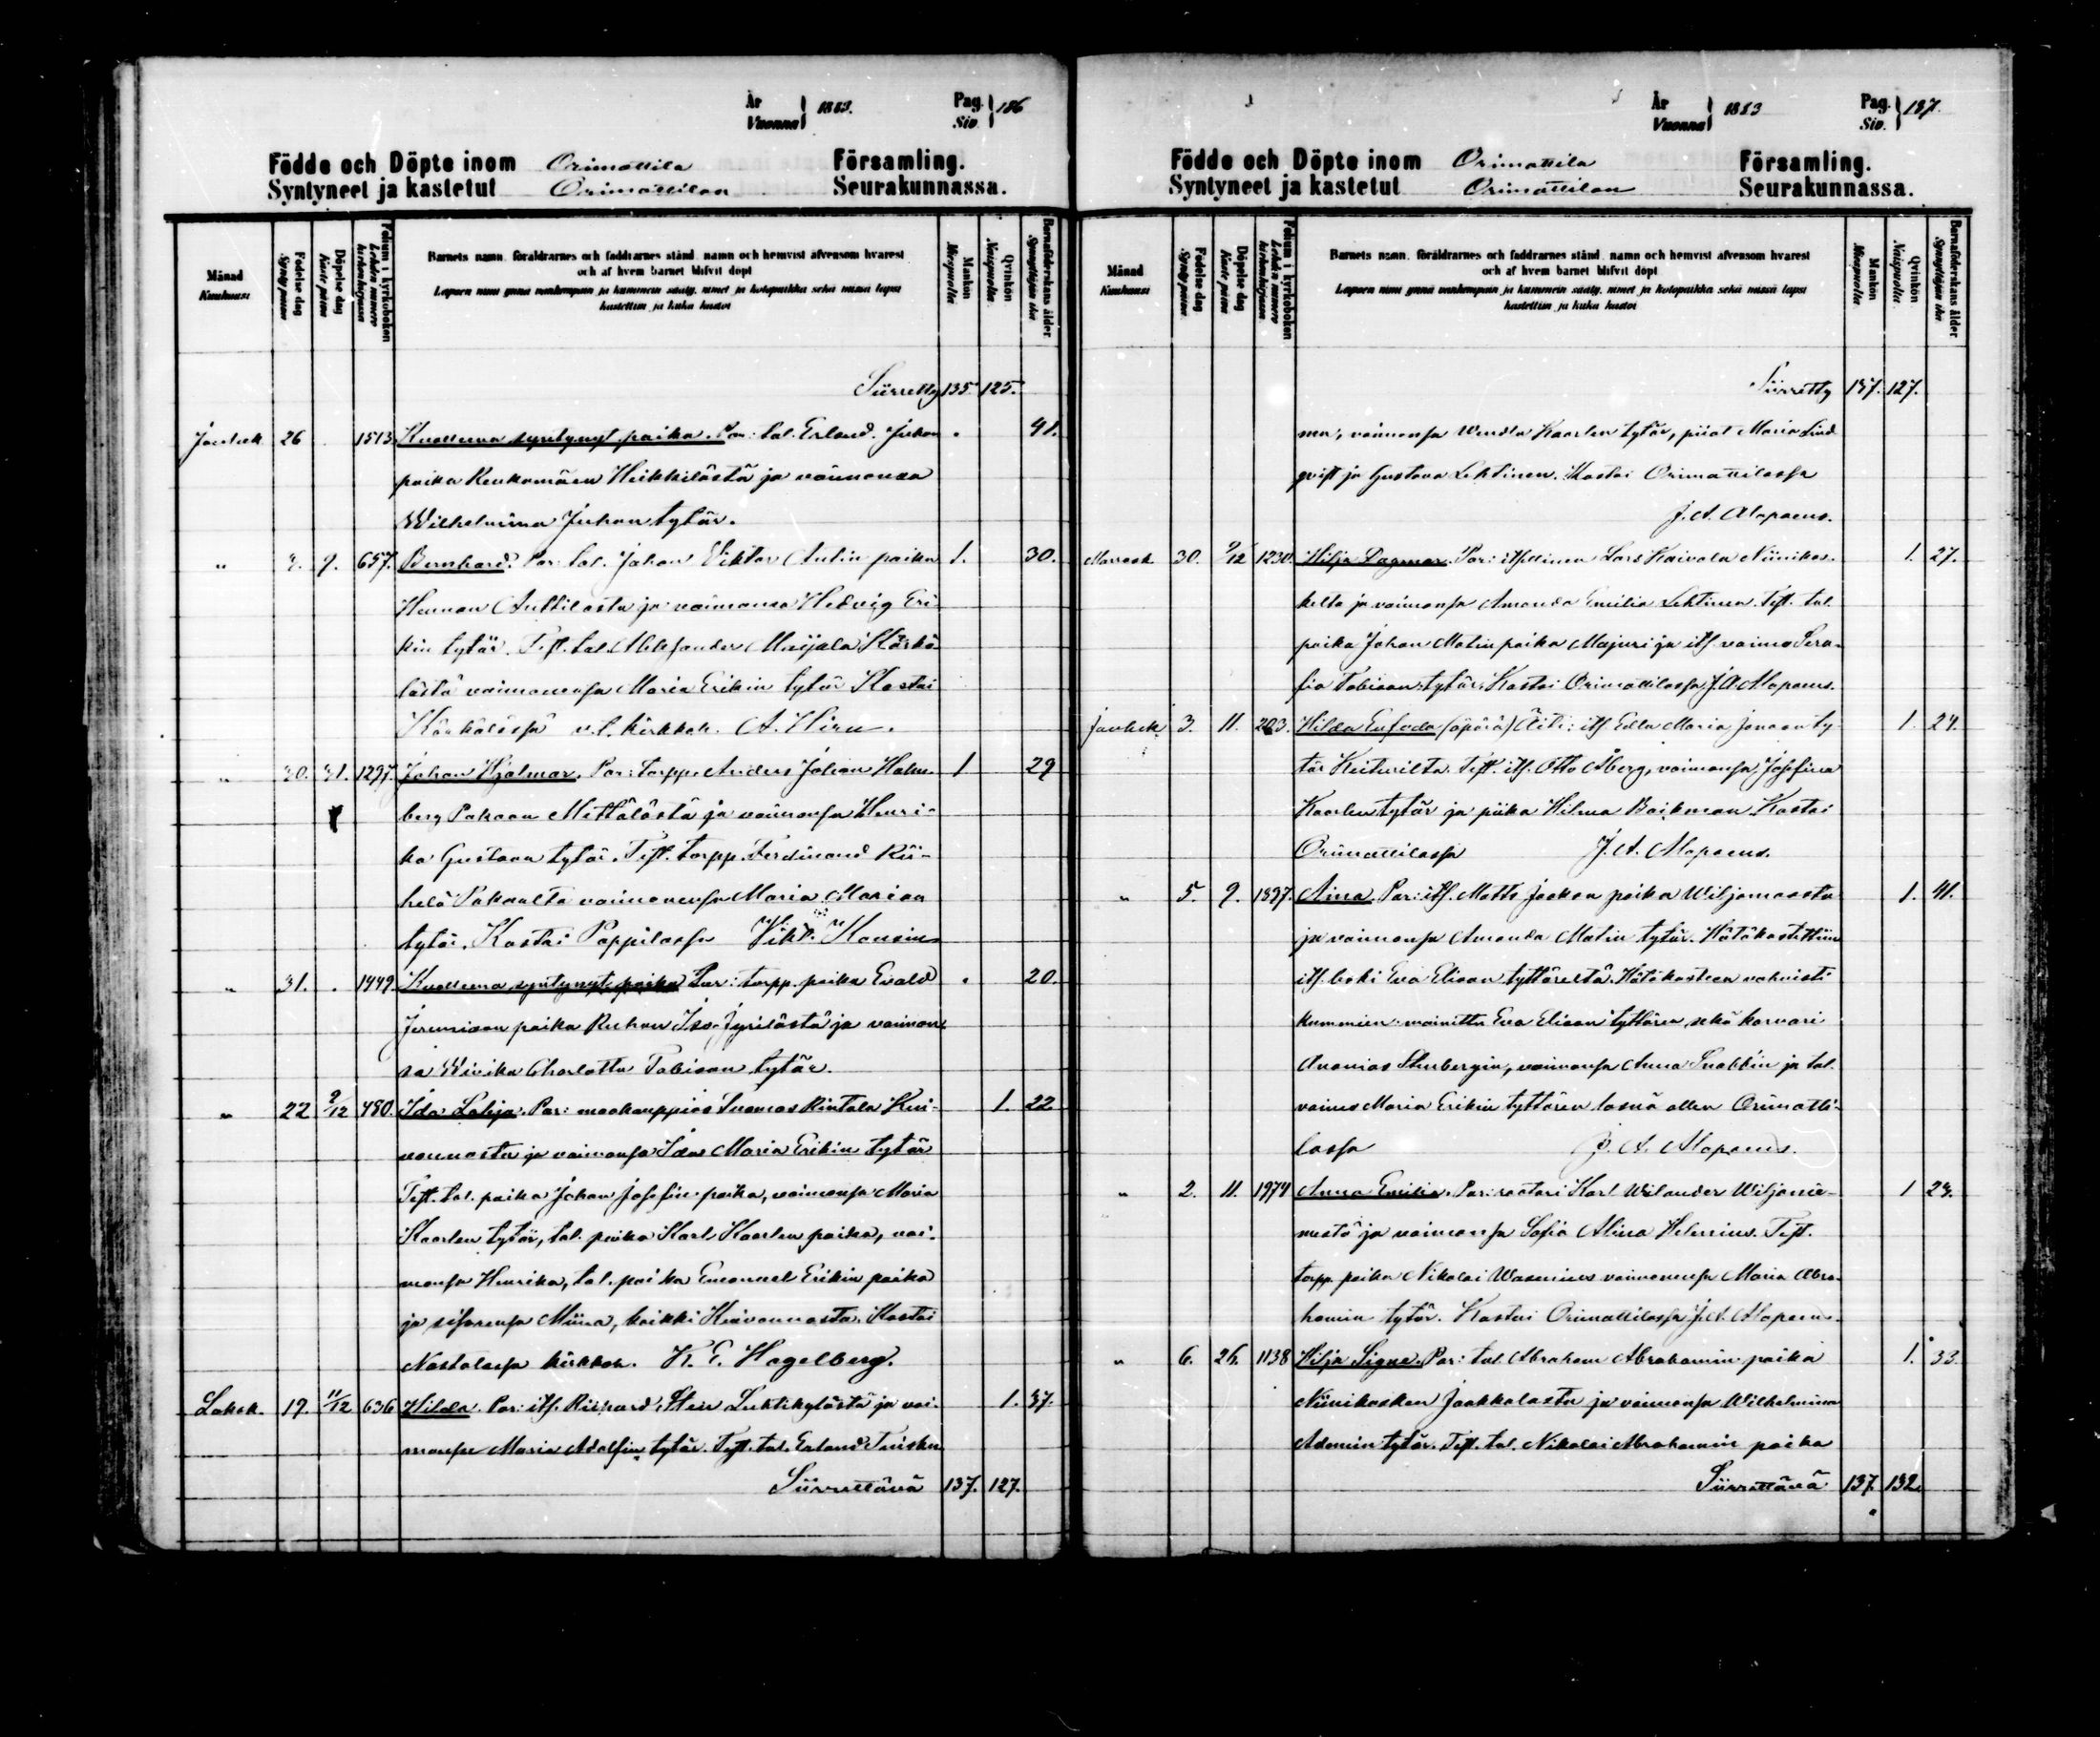 År
Vuonna
1883.
Pag.
Siv.
186
Födde och Döpte inom Orimattila Församling.
Syntyneet ja kastetut Orimattilan Seurakunnassa.
Månad
Kuukausi
Födelse dag
Syntymä päivä
Döpelse dag
Kaste päivä
Folium i kyrkoboken
Lehden numero kirkonkirjassa
Barnets namn, föräldrarnes och faddrarnes stånd, namn och hemvist äfvensom hvarest
och af hvem barnet blifvit döpt
Lapsen nimi ynnä vanhempain ja kummein sääty, nimet ja kotopaikka sekä missä lapsi
kastettiin ja kuka kastoi
Mankön
Miespuolta
Qvinkön
Naispuolta
Barnaföderskans ålder
Synnyttäjän ikä
Siirretty 135 125.
26 1513 Kuolleena syntynyt poika. Van: tal. Erland Juhan 41.
poika Keukomäen Heikkilästä ja vaimonsa
Wilhelmina Juhan tytär.
" 9. 657. Bernhard. Van: tal. Johan Viktor Antin poika 1. 30.
Hennan Anttilasta ja vaimonsa Hedvig Eri-
kin tytär. Test. tal. Aleksander Maijala Kärkö-
lästä vaimonensa Maria Erikin tytär Kastoi
Kärkölässä v.t. kirkkoh. A. Hirn.
" 30. 31. 1297. Johan Hjalmar. Van: torpp. Anders Johan Holm- 1 29
berg Pakaan Mettälästä ja vaimonsa Henri-
ka Gustaan tytär. Test. torpp. Ferdinand Rii-
helä Pakaalta vaimonensa Maria
tytär. Kastoi Pappilassa Vikt.
" 31. 1449. Kuolleena syntynyt poika Van: torpp. poika Evald 20.
Jeremiaan poika Ruhan Iso-Jyrilästä ja vaimon-
sa Wivika Charlotta Tobiaan tytär.
" 22 9/12 480. Ida Lahja. Van: maakauppias Tuomas Rintala Kui- 1. 22
vannosta ja vaimonsa Ida Maria Erikin tytär
Test. tal. poika Johan Josefin poika, vaimonsa Maria
Kaarlen tytär, tal. poika Karl Kaarlen poika, vai-
monsa Henrika, tal. poika Emanuel Erikin poika
ja sisarensa Miina, kaikki Kuivannosta. Kastoi
Nastolassa kirkkoh. K. E. Hagelberg.
Lokak. 19. 11/12 636 Hilda. Van: its. Rikhard Sten Luhtikylästä ja vai- 1. 37.
monsa Maria Adolfin tytär. Test. tal. Erland Tuisku
Siirrettävä 137. 127.
År
Vuonna
1883
Pag.
Siv.
187.
Födde och Döpte inom Orimattila Församling.
Syntyneet ja kastetut Orimattilan Seurakunnassa.
Månad
Kuukausi
Födelse dag
Syntymä päivä
Döpelse dag
Kaste päivä
Folium i kyrkoboken
Lehden numero kirkonkirjassa
Barnets namn, föräldrarnes och faddrarnes stånd, namn och hemvist äfvensom hvarest
och af hvem barnet blifvit döpt
Lapsen nimi ynnä vanhempain ja kummein sääty, nimet ja kotopaikka sekä missä lapsi
kastettiin ja kuka kastoi
Mankön
Miespuolta
Qvinkön
Naispuolta
Barnaföderskans ålder
Synnyttäjän ikä
Siirretty 137. 127.
nen, vaimonsa Wendla Kaarlen tytär, piiat Maria Lind
qvist ja Gustava Lehtinen. Kastoi Orimattilassa
J. A. Alopaeus.
Marrask. 30. 9/12 1230. Hilja Dagmar. Van: itsellinen Lars Kaivola Niinikos- 1. 27.
kelta ja vaimonsa Amanda Emilia Lehtinen. Test. tal.
poika Johan Matin poika Majuri ja its. vaimo Sera-
fia Tobiaan tytär. Kastoi Orimattilassa J. A. Alopaeus.
Jouluk. 3. 11. 203. Hilda (äpärä) Äiti: its. Edla Maria Jonaan ty- 1. 24.
tär Keiturilta. Test. its. Otto Åberg, vaimonsa Josefina
Kaarlen tytär ja piika Hilma Backman. Kastoi
Orimattilassa J. A. Alopaeus.
" 5. 9. 1337. Aina. Van: its. Matts Jaakon poika Wiljamaasta 1. 41.
ja vaimonsa Amanda Matin tytär. Hätäkastettiin
its. leski Eva Eliaan tyttäreltä. Hätäkasteen vahvisti
kummien: mainittu Eva Eliaan tyttären, sekä karvari
Ananias Stenbergin, vaimonsa Anna Snabbin ja tal.
vaimo Maria Erikin tyttären läsnä ollen Orimatti-
lassa J. A. Alopaeus.
" 2. 11. 1974 Anna Emilia. Van: raatari Karl Wilander Wiljanie- 1 24.
mestä ja vaimonsa Sofia Alina Helenius. Test.
torpp. poika Nikolai Wasenius vaimonensa Maria Abra-
hamin tytär. Kastoi Orimattilassa J. A. Alopaeus.
" 6. 26. 1138 Hilja Signe. Van: tal. Abraham Abrahamin poika 1. 33.
Niinikosken Jaakkolasta ja vaimonsa Wilhelmina
Adamin tytär. Test. tal. Nikolai Abrahamin poika
Siirrettävä 137. 132.